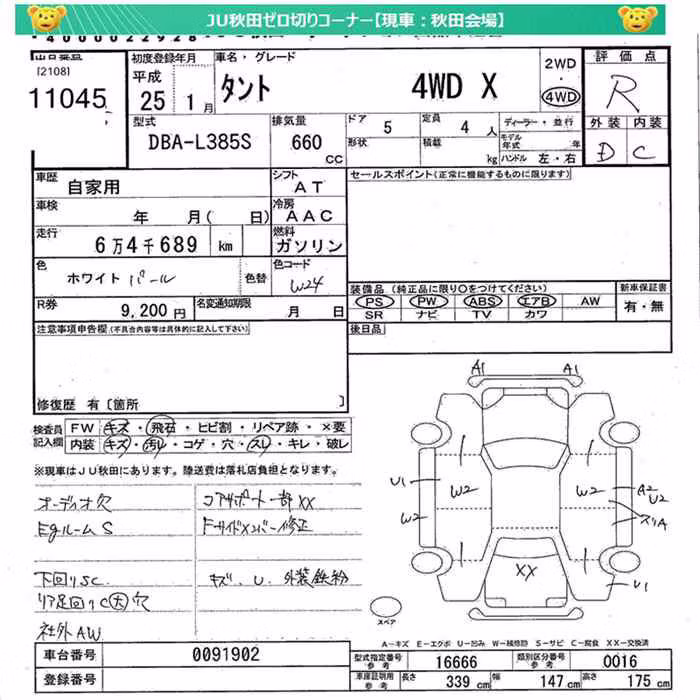 JU秋田ゼロ切りコーナー【現車：秋田会場】
4000022928
出品番号
[2108]
11045
初度登録年月
平成
25 1月
車名・グレード
タント 4WD X
2WD
・
4WD
評価点
R
外装 内装
D C
型式
DBA-L385S
排気量
660
CC
ドア 5
形状
定員 4 人
積載 kg
ディーラー・並行
モデル年式 年
ハンドル 左・右
車歴
自家用
シフト
AT
セールスポイント(正常に機能するものに限ります)
車検
年 月( 日)
冷房
AAC
走行
6万4千689 km
燃料
ガソリン
色
ホワイトパール
色替
色コード
W24
R券
9,200円
名変通知期限
月 日
装備品 (純正品に限り○をつけてください)
PS PW ABS エアB AW
SR ナビ TV カワ
新車保証書
有・無
注意事項申告欄(不具合内容等は具体的に記入して下さい)
後日品
修復歴 有[箇所 ]
検査員記入欄
FW キズ・飛石・ヒビ割・リペア跡・×要
内装 キズ・汚れ・コゲ・穴・スレ・キレ・破レ
※現車はJU秋田にあります。陸送費は落札店負担となります。
オーディオ穴
Egルーム S
下回りSC
リア足回りC大穴
社外AW
コアサポート一部XX
Fサイドメンバー修正
キズ、U、外装鉄粉
A1 A1
U1 W2 W2 A2
U2
W2 スリA
XX
U1
スペア
A－キズ E－エクボ U－凹み W－補修跡 S－サビ C－腐食 XX－交換済
車台番号 0091902
登録番号
型式指定番号
参考 16666
類別区分番号
参考 0016
車庫証明用
参考 長さ 339 cm 幅 147 cm 高さ 175 cm